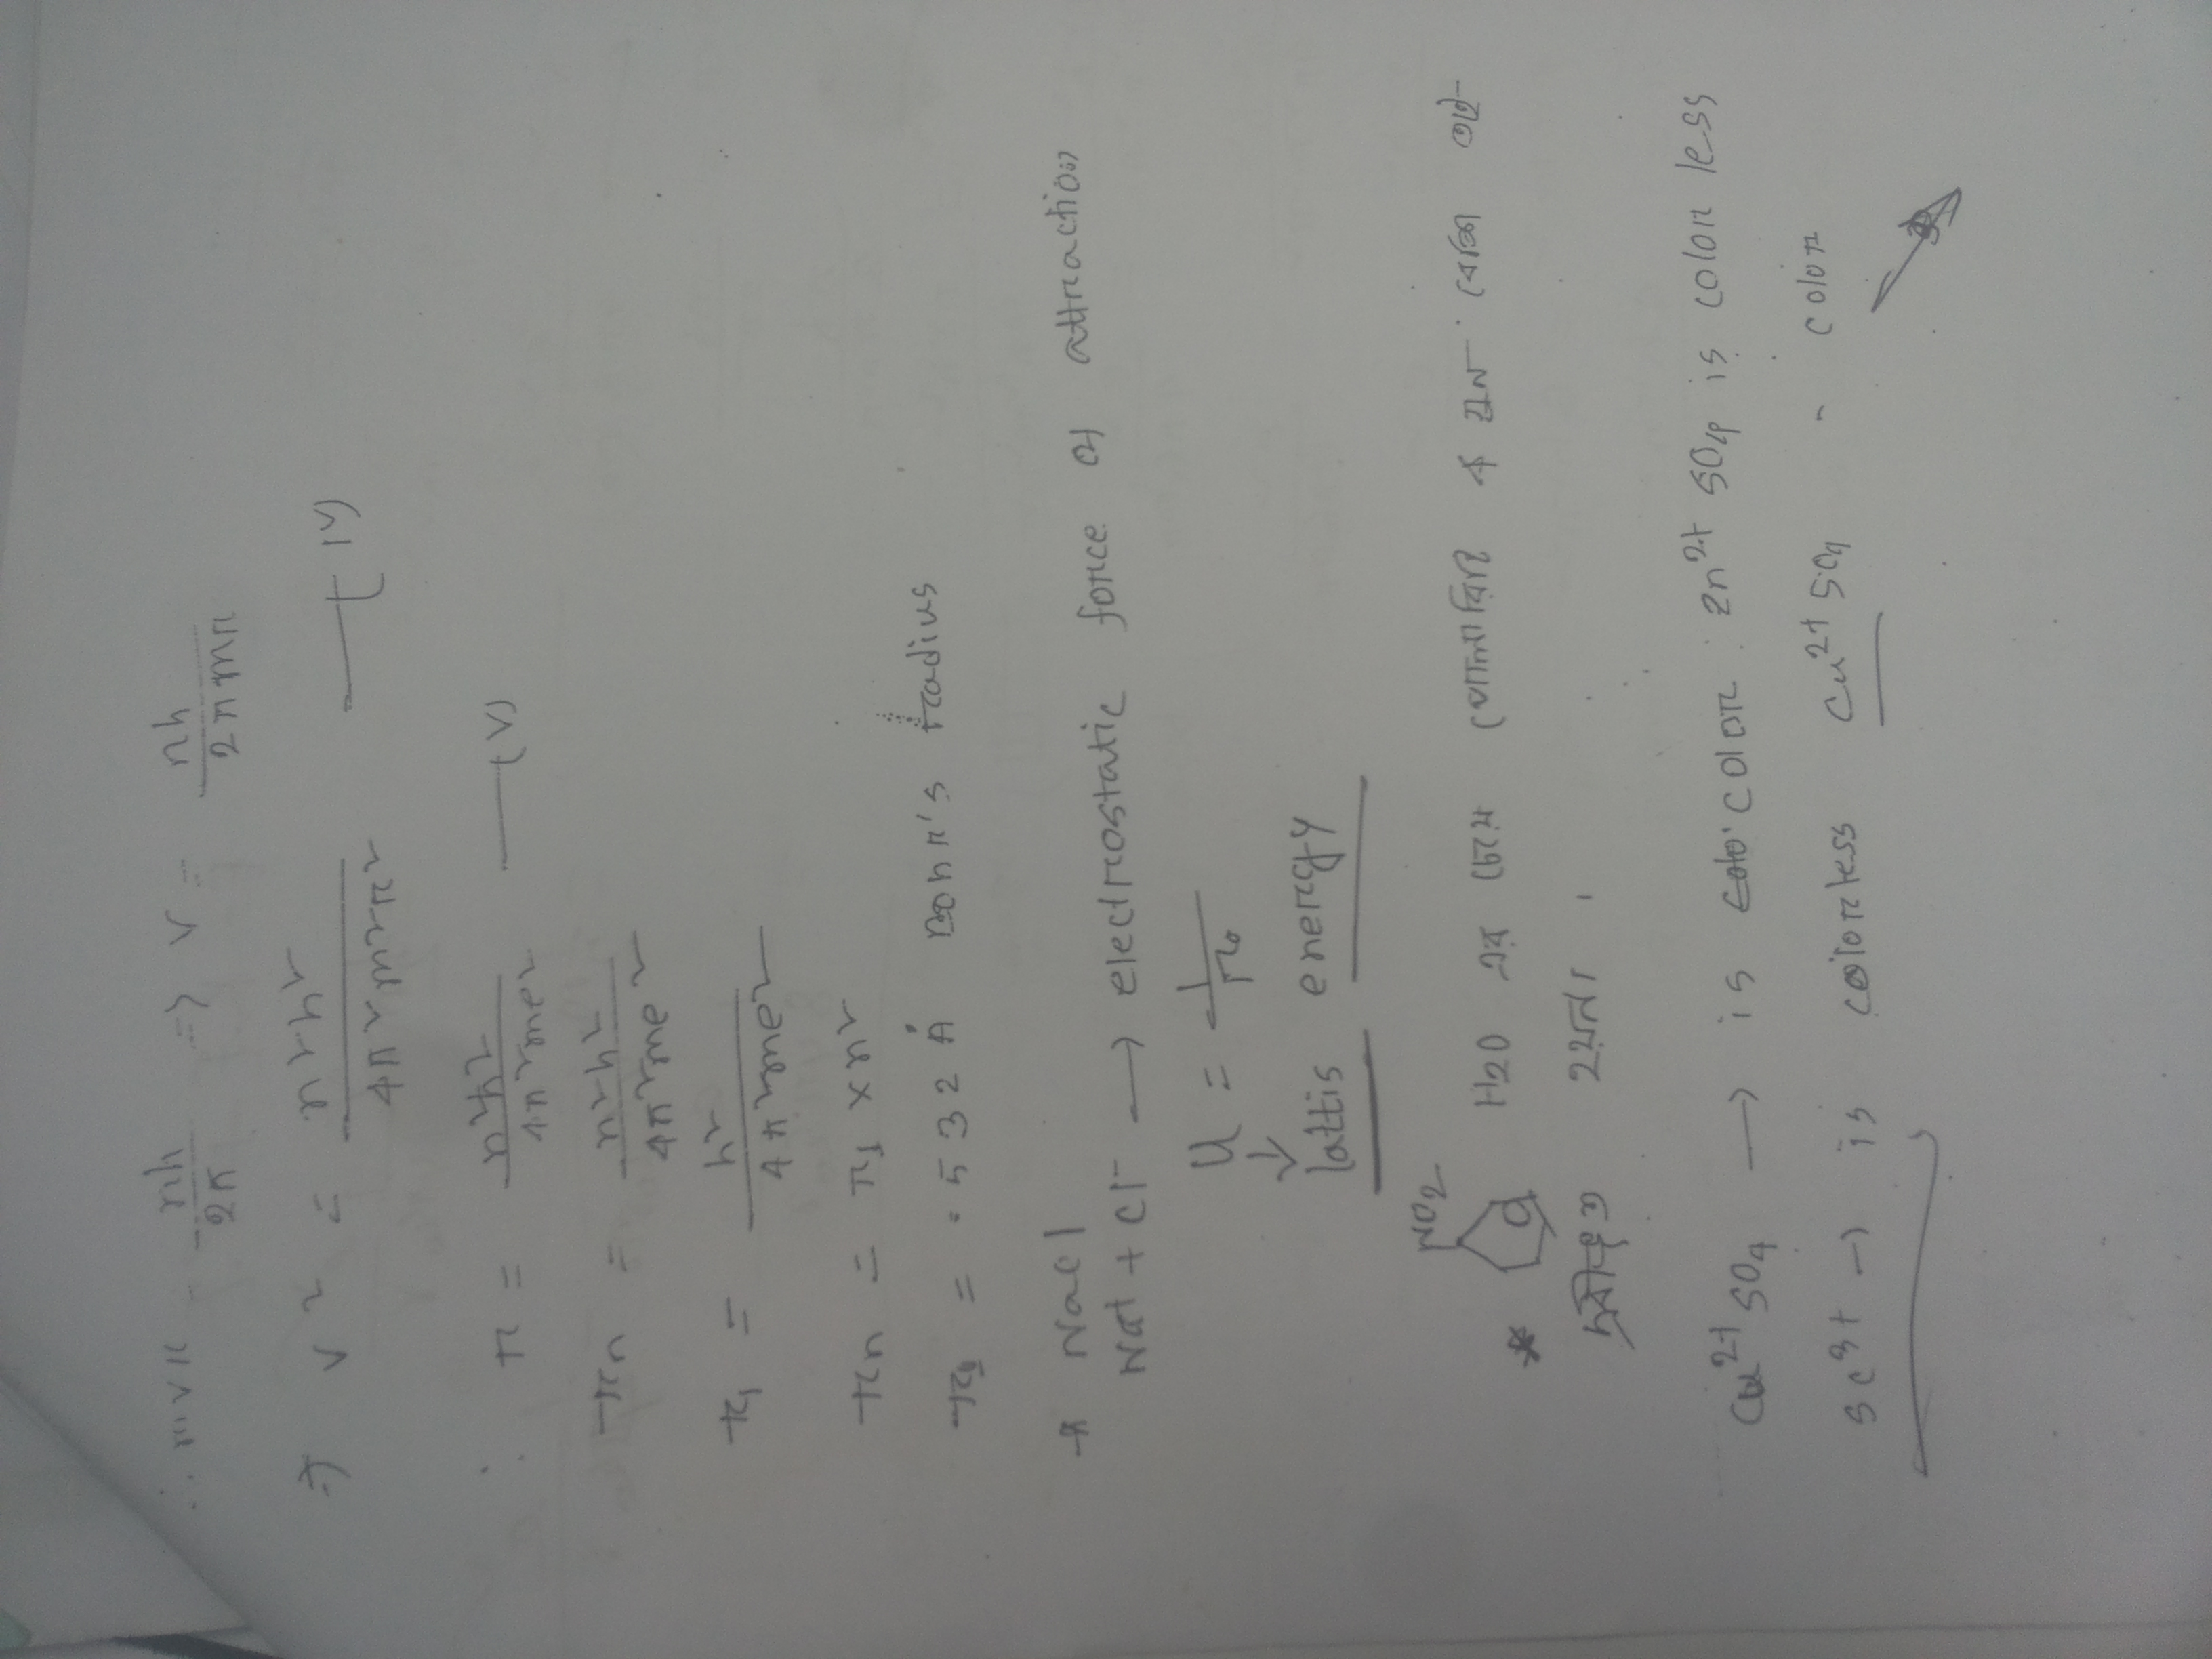 ∴ mvr = nh/2π => v = nh/2πmr
=> v² = n²h²/4π²m²r² —(IV)
∴ r = n²h²/4π²me² —(V)
rn = n²h²/4π²me²
r1 = h²/4π²me²
rn = r1 × n²
= .532 Å Bohr's radius
* NaCl
Na+ + Cl- → electrostatic force of attraction
U = 1/r0
↓
lattis energy
NO2
* H2O এর চেয়ে পোলারিটি গুন বেশি তাই-
দ্রবীভূত হয়না।
Cu2+ SO4 → is color Zn2+ SO4 is color less
Sc3+ → is colorless Cu2+ SO4 - color